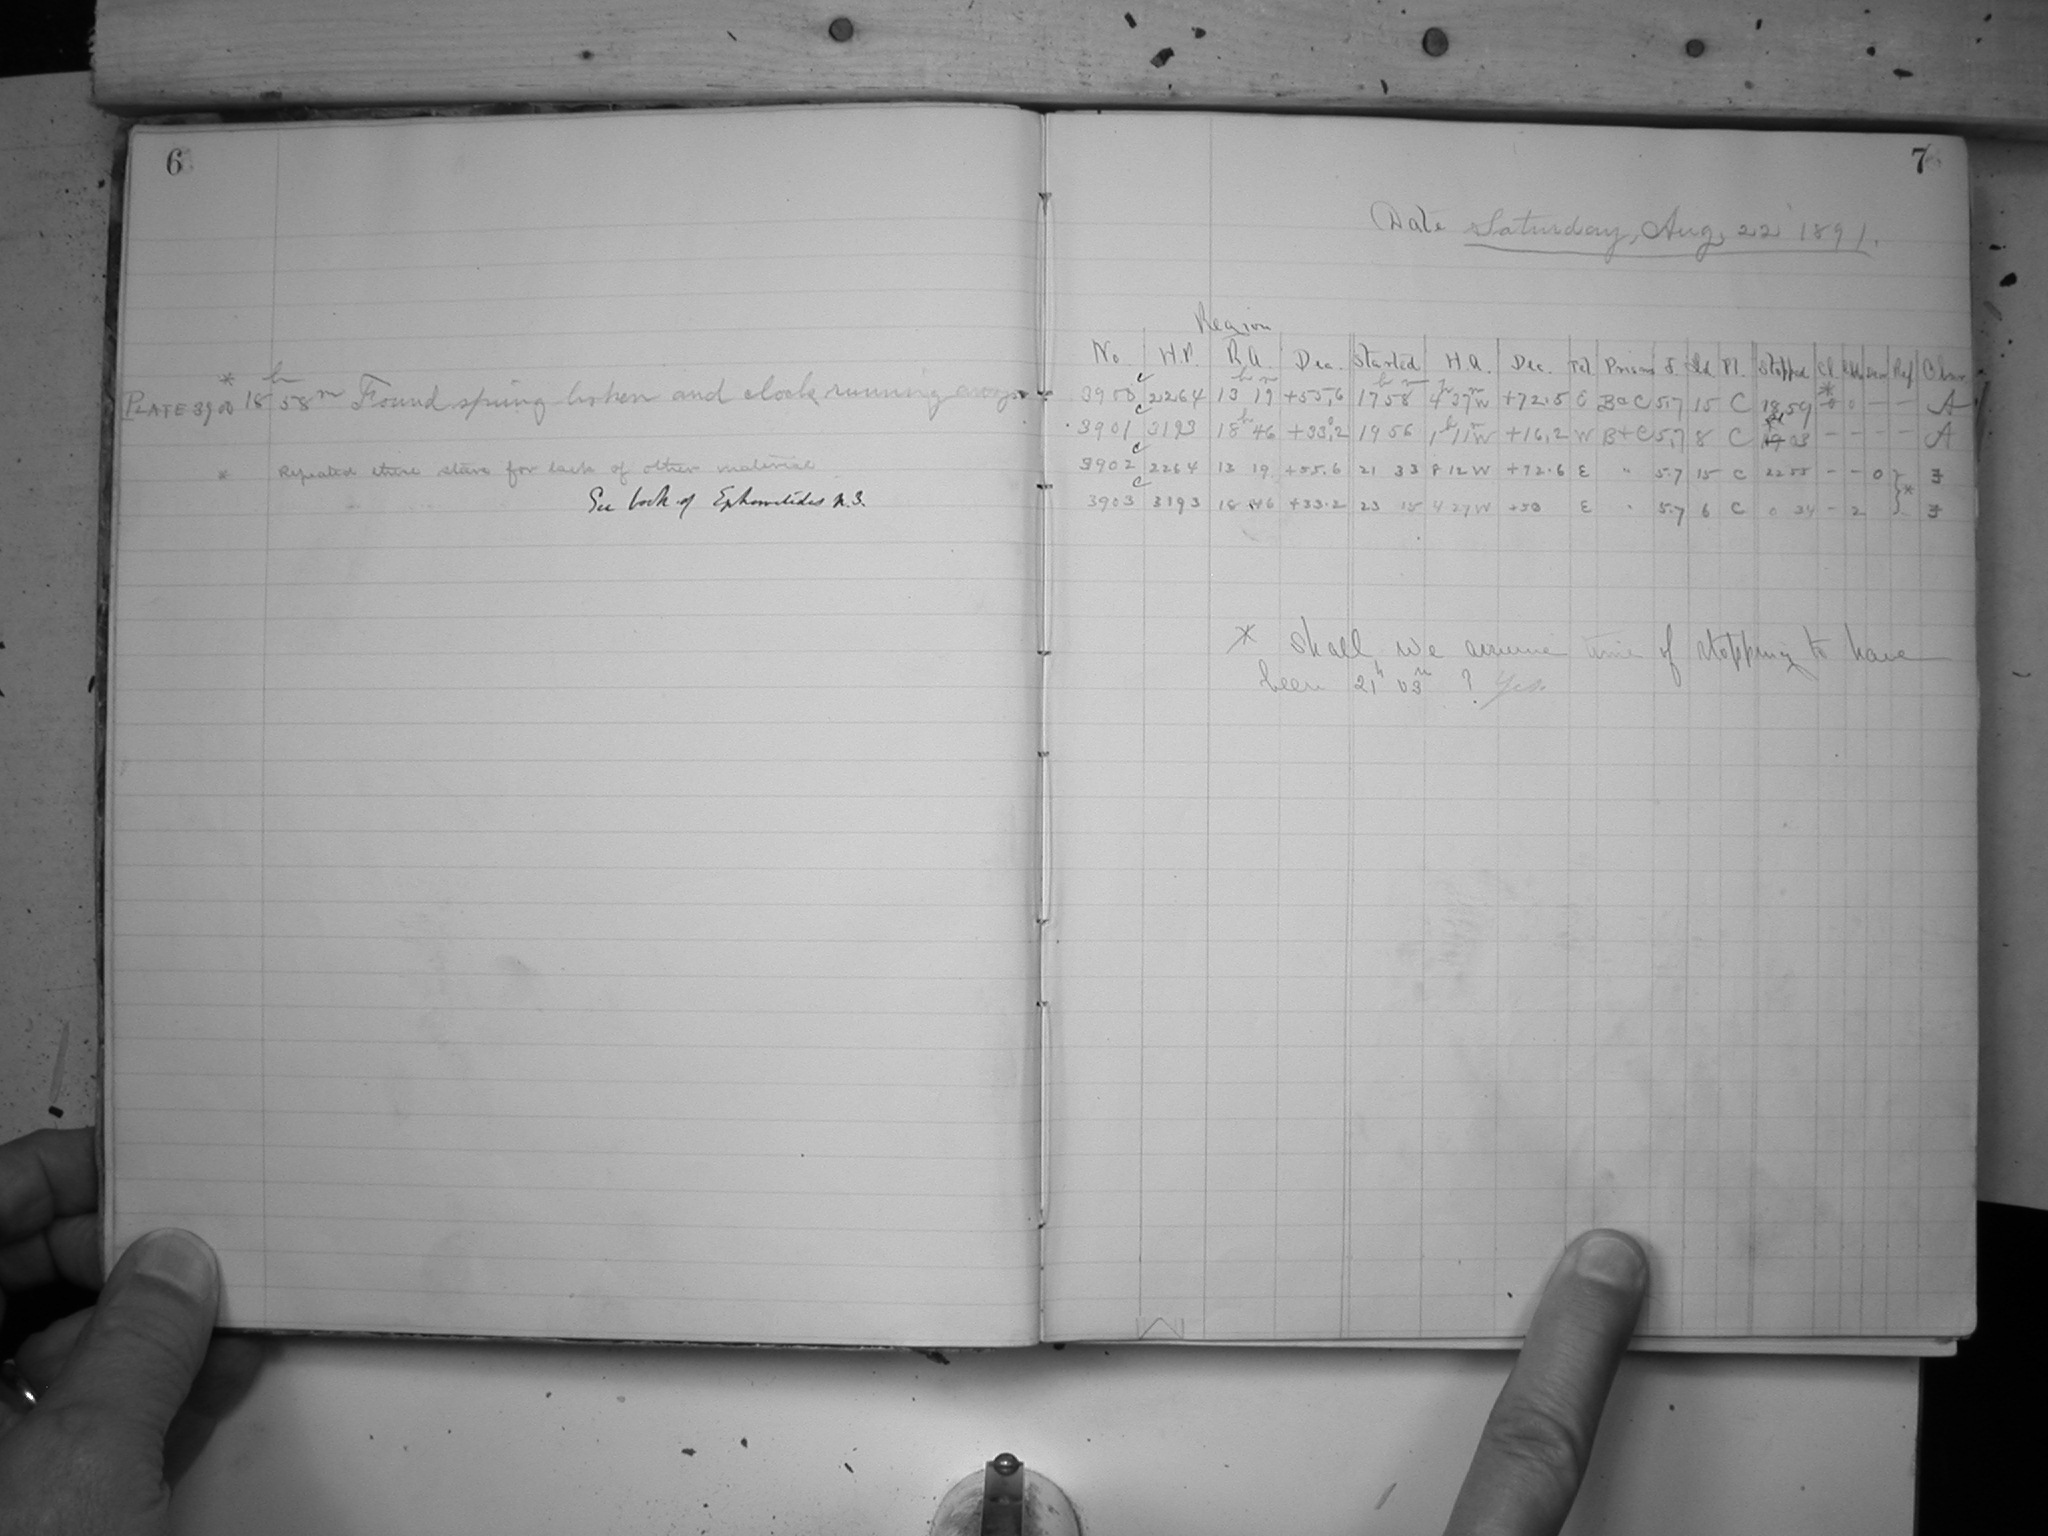 6
PLATE 3900 * 18h 58m Found spring broken and clock running away.
* Repeated these stars for lack of other material
See book of Ephemerides n.3.
7
Date Saturday, Aug, 22 1891.
Region
No H.P. R.A. Dec. Started H.A. Dec. Tel. Prism S. Sd Pl. Stopped Cl Ref Obsr
3900 c 2264 13h 19m +55,6 17h 58m 4h 37m W +72.5 E B&C 5,7 15 C 18,59 * 0 0 - - A
3901 c 3193 18h 46 +33,2 19 56 1h 11m W +16,2 W B+C 5,7 8 C 03 - - - - A
3902 c 2264 13 19 +55.6 21 33 8 12 W +72.6 E " 5.7 15 C 22 55 - - 0 } F
3903 c 3193 18 46 +33.2 23 15 4 27 W +50 E " 5.7 6 C 0 34 - 2 } * F
* Shall we assume time of stopping to have
been 21h 03m ? Yes